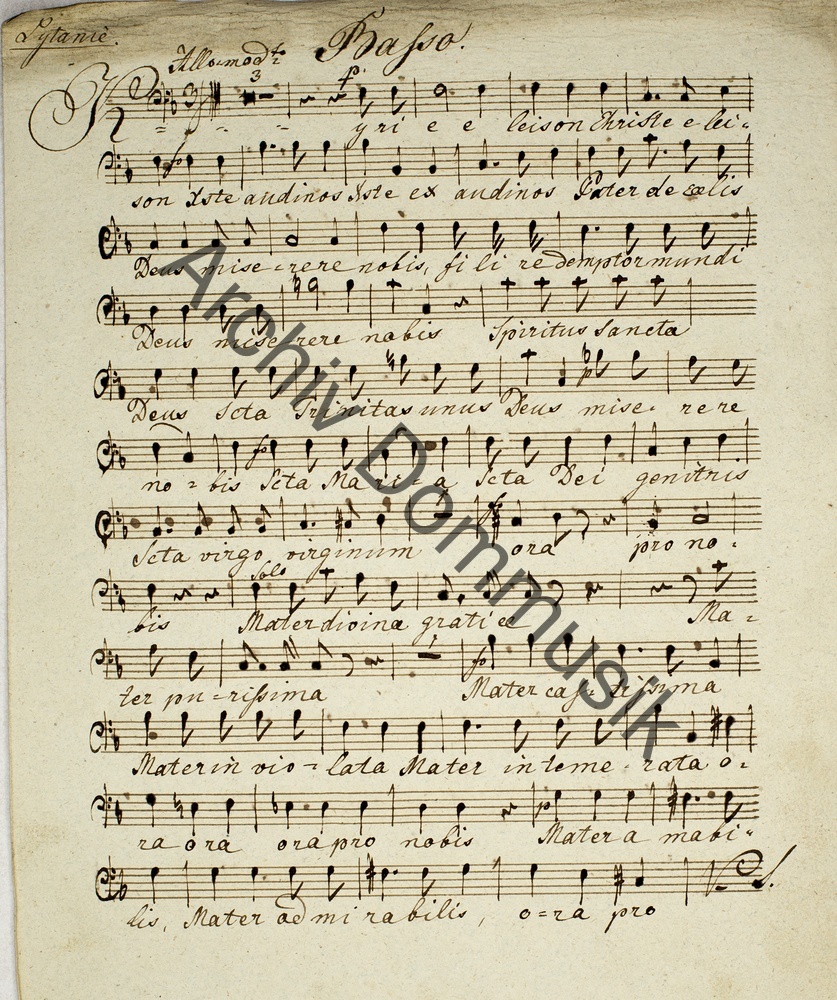 Lytanie.
Basso.
Allo: modto:
3
p
K = = = = yri e e leison Christe e lei=
son Xste audinos Xste ex audinos Pater de cœlis
Deus mise=rere nobis, fi li redemptor mundi
Deus miserere nobis Spiritus Sancta
Deus Scta Trinitas unus Deus mise= rere
no = bis Scta Mari=a Scta Dei genitris
Scta virgo virginum ora pro no=
Solo
bis Mater divina gratiæ Ma=
ter pu=rissima Mater cas=tissima
Mater in vio=lata Mater inteme=rata o=
ra ora ora pro nobis Mater a mabi=
lis, Mater admirabilis, o=ra pro
V. S.
Archiv Dommusik